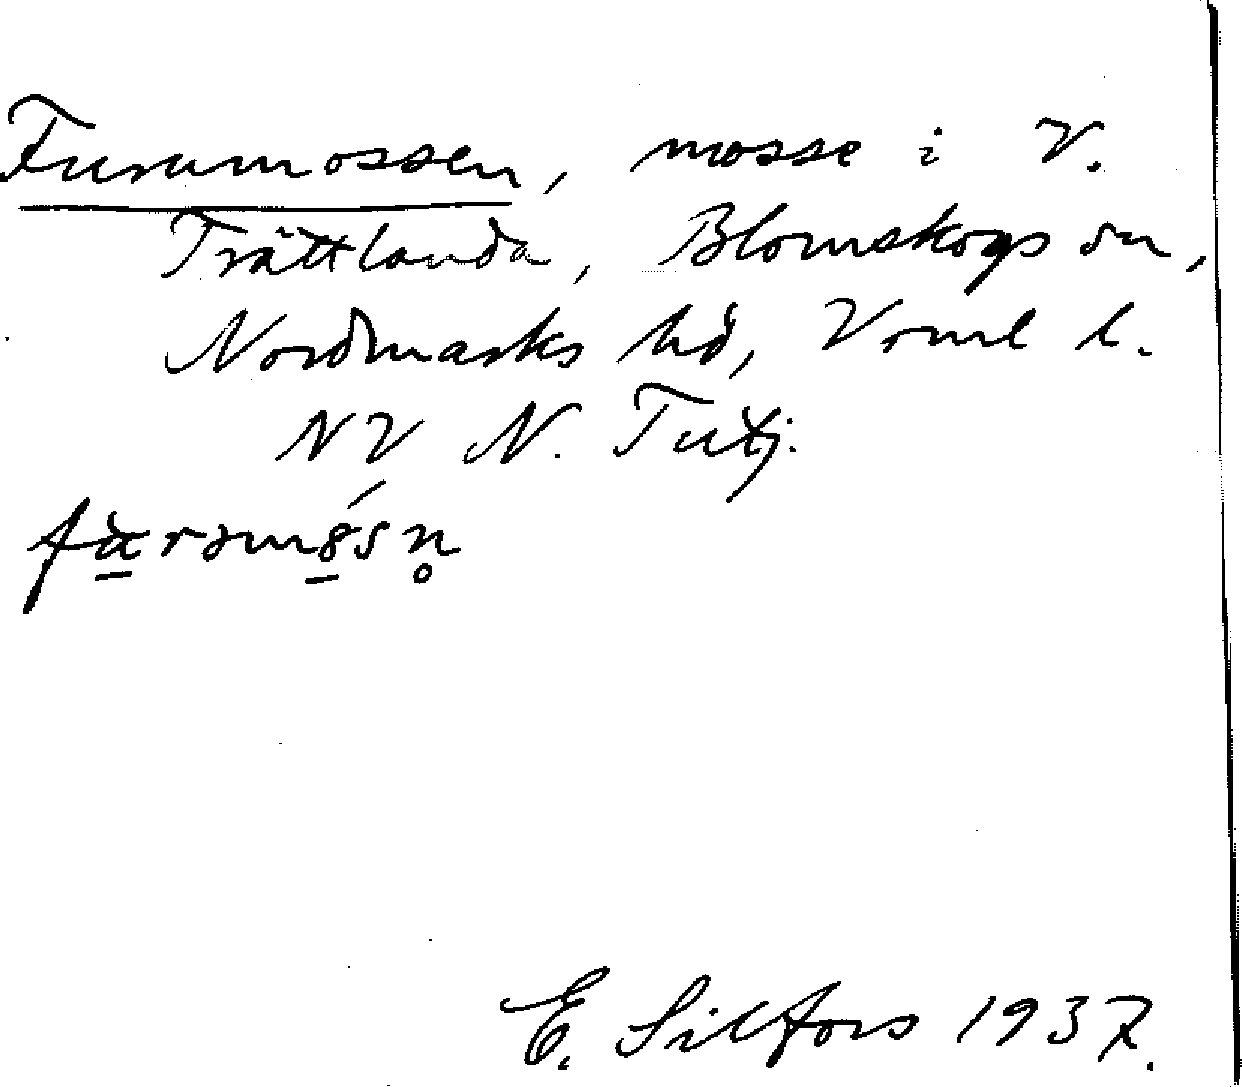 Furumossen, mosse i V.
Trättlanda, Blomskogs sn,
Nordmarks hd, Vrml l.
NV N. Tutj.
E. Silfors 1937.